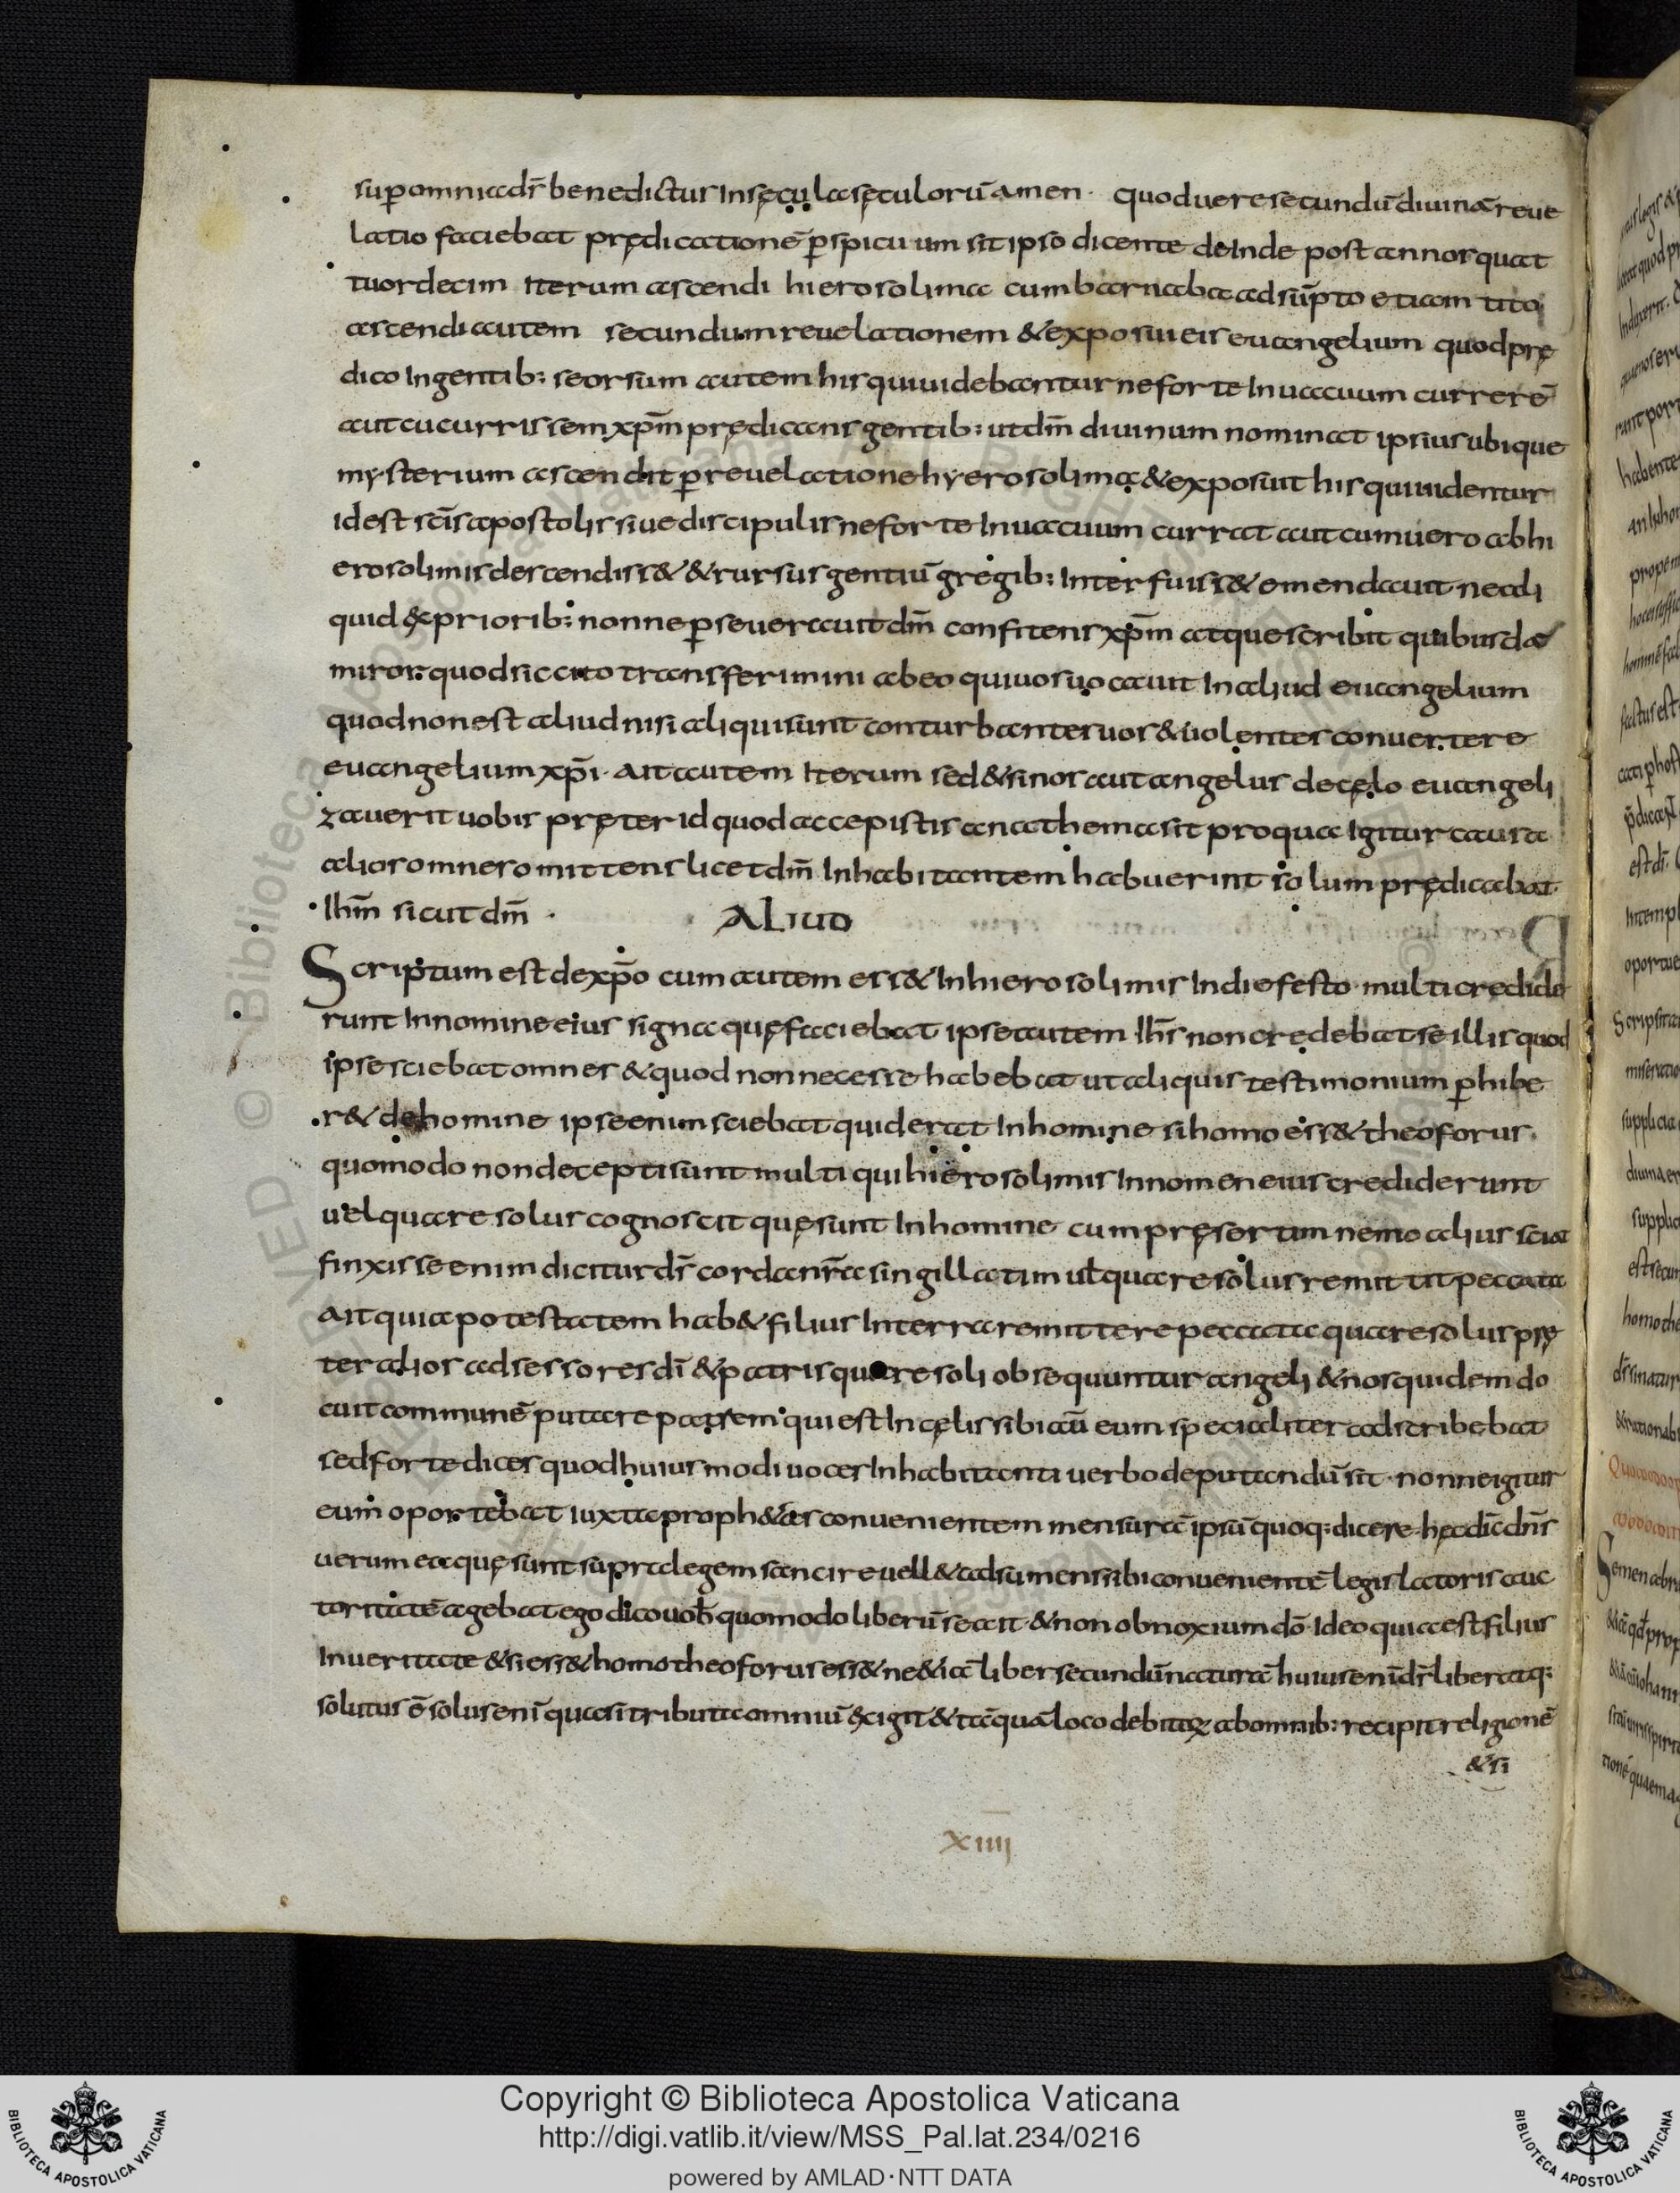 sup̄ omnia dr̄ benedictus In sęcula sęculorū amen · Quod uere secundū diuinā reue
latio faciebat prędicationē p̄spicuum sit ipso dicente deInde post annos quat
tuordecim Iterum ascendi hierosolima cum barnaba adsūpto etiam tito
ascendi autem secundum reuelationem & exposui eis euangelium quod prę
dico In gentib: seorsum autem his qui uidebantur ne forte In uacuum currerē
aut cucurrissem xp̄m prędicans gentib: ut dm̄ diuinum nominat ipsius ubique
mysterium ascendit p̄ reuelatione hyerosolima & exposuit his qui uidentur
id est sc̄is apostolis siue discipulis ne forte In uacuum currat aut cum uero ab hi
erosolimis descendiss& & rursus gentiū gregib: Interfuiss& emendauit ne ali
quid ęx priorib: nonne p̄seuerauit dm̄ confitens xp̄m atque scribit quibusdā
miror: quod sic cito transferimini ab eo qui uos uocauit In aliud euangelium
quod non est aliud nisi aliqui sunt conturbantes uos & uolentes conuertere
euangelium xp̄i · ait autem Iterum sed & si nos aut angelus de cęlo euangeli
zauerit uobis pręter id quod accepistis anathema sit pro qua Igitur causa
alios omnes omittens licet dm̄ Inhabitantem habuerint solum prędicabat
· Ihm̄ sicut dm̄ · ALIUD
Scriptum est de xp̄o cum autem ess& In hierosolimis In die festo multi credide
runt In nomine eius signa quę faciebat ipse autem Ihs̄ non credebat se illis quod
ipse sciebat omnes & quod non necesse habebat ut aliquis testimonium p̄hibe
r& de homine ipse enim sciebat quid erat In homine si homo ess& theoforus
quomodo non decepti sunt multi qui hierosolimis In nomen eius crediderunt
uel quare solus cognoscit quę sunt In homine cum pręsertim nemo alius sciat
finxisse enim dicitur dr̄ corda nr̄a singillatim ul̄ quare solus remittit peccata
ait quia potestatem hab& filius In terra remittere peccata quare solus prę
ter alios adsessores dī & patris quare soli obsequuntur angeli & nos quidem do
cuit communē putare patrem qui est In cęlis sibi aū eum specialiter adscribebat
sed forte dices quod huiusmodi uoces Inhabitanti uerbo deputandū sit · nonne igitur
eum oportebat iuxta proph&as conuenientem mensurā ipsū quoq: dicere hęc dic̄ dnr̄
uerum ea quę sunt supra legem sancire uell& adsumens sibi conuenientē legislatoris auc
toritatē agebat ego dico uob̄ quomodo liberū se ait & non obnoxium dō Ideo quia est filius
In ueritate & si ess& homo theoforus ess& ne&iā liber secundū naturā huius enī dr̄ libertaq:
solutus ē solus enī quasi tributa omniū ęxigit & tāquā loco debita ab omnib: recipit religionē
& si
XIIII
Copyright © Biblioteca Apostolica Vaticana
http://digi.vatlib.it/view/MSS_Pal.lat.234/0216
powered by AMLAD·NTT DATA
BIBLIOTECA APOSTOLICA VATICANA
BIBLIOTECA APOSTOLICA VATICANA